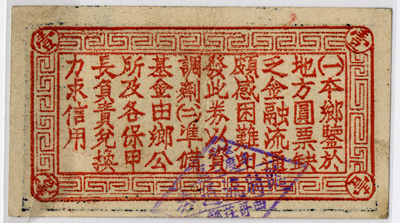 (一)本鄉鑒於
地方圓票缺
乏金融流通
頗感困難印
發此券以資
調劑(二)準備
基金由鄉公
所及各保甲
長負責兌換
力求信用
壹